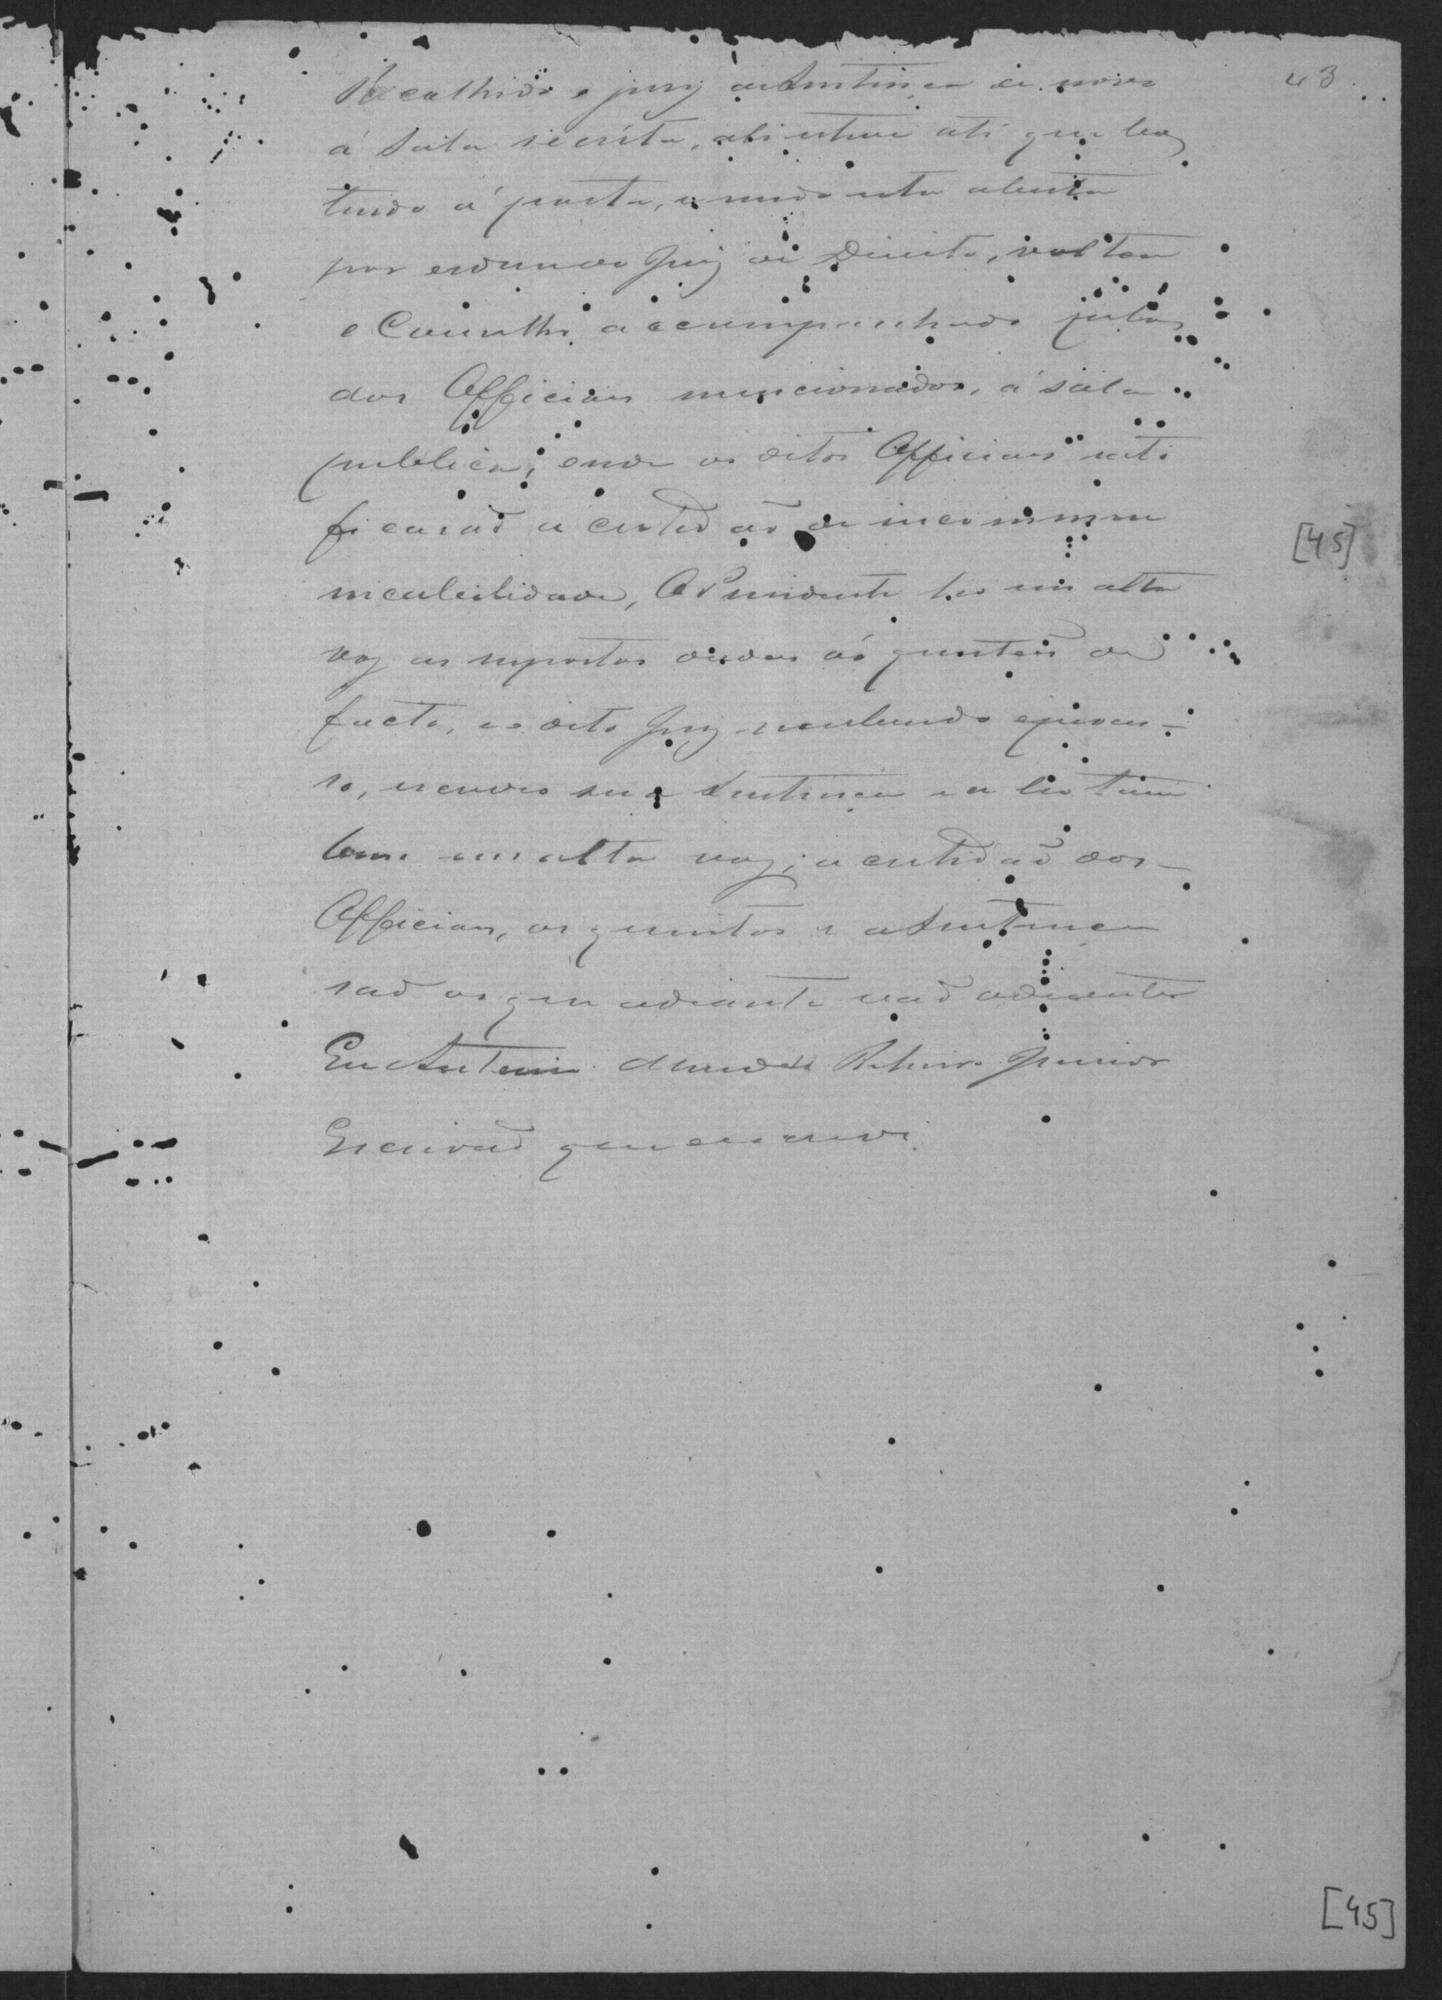 43
Recolhido o jury de Sentença de novo
á Sala secreta, ahi esteve até que ba
tendo á porta, e sendo esta aberta
por ordem do Juiz de Direito, voltou
o Conselho accompanhado pelos
dos Officiaes mencionados, á sala
publica, onde os ditos Officiaes rati
ficarão a certidão de incommu
nicabilidade, O Presidente leo em alta
voz as repostas dadas aos quesitos de
facto, e o dito Juiz recebendo o proces-
so, escreveo sua Sentença e a leo tam
bem em alta voz; a certidão dos
Officiaes, os quesitos e a Sentença
são os que adiante vão
Eu Antonio Mendes Ribeiro Junior
Escrivão que escrevi.
[45]
[45]